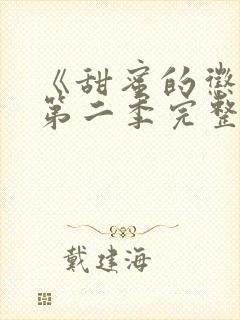 《甜蜜的惩
第二季完整
戴建海